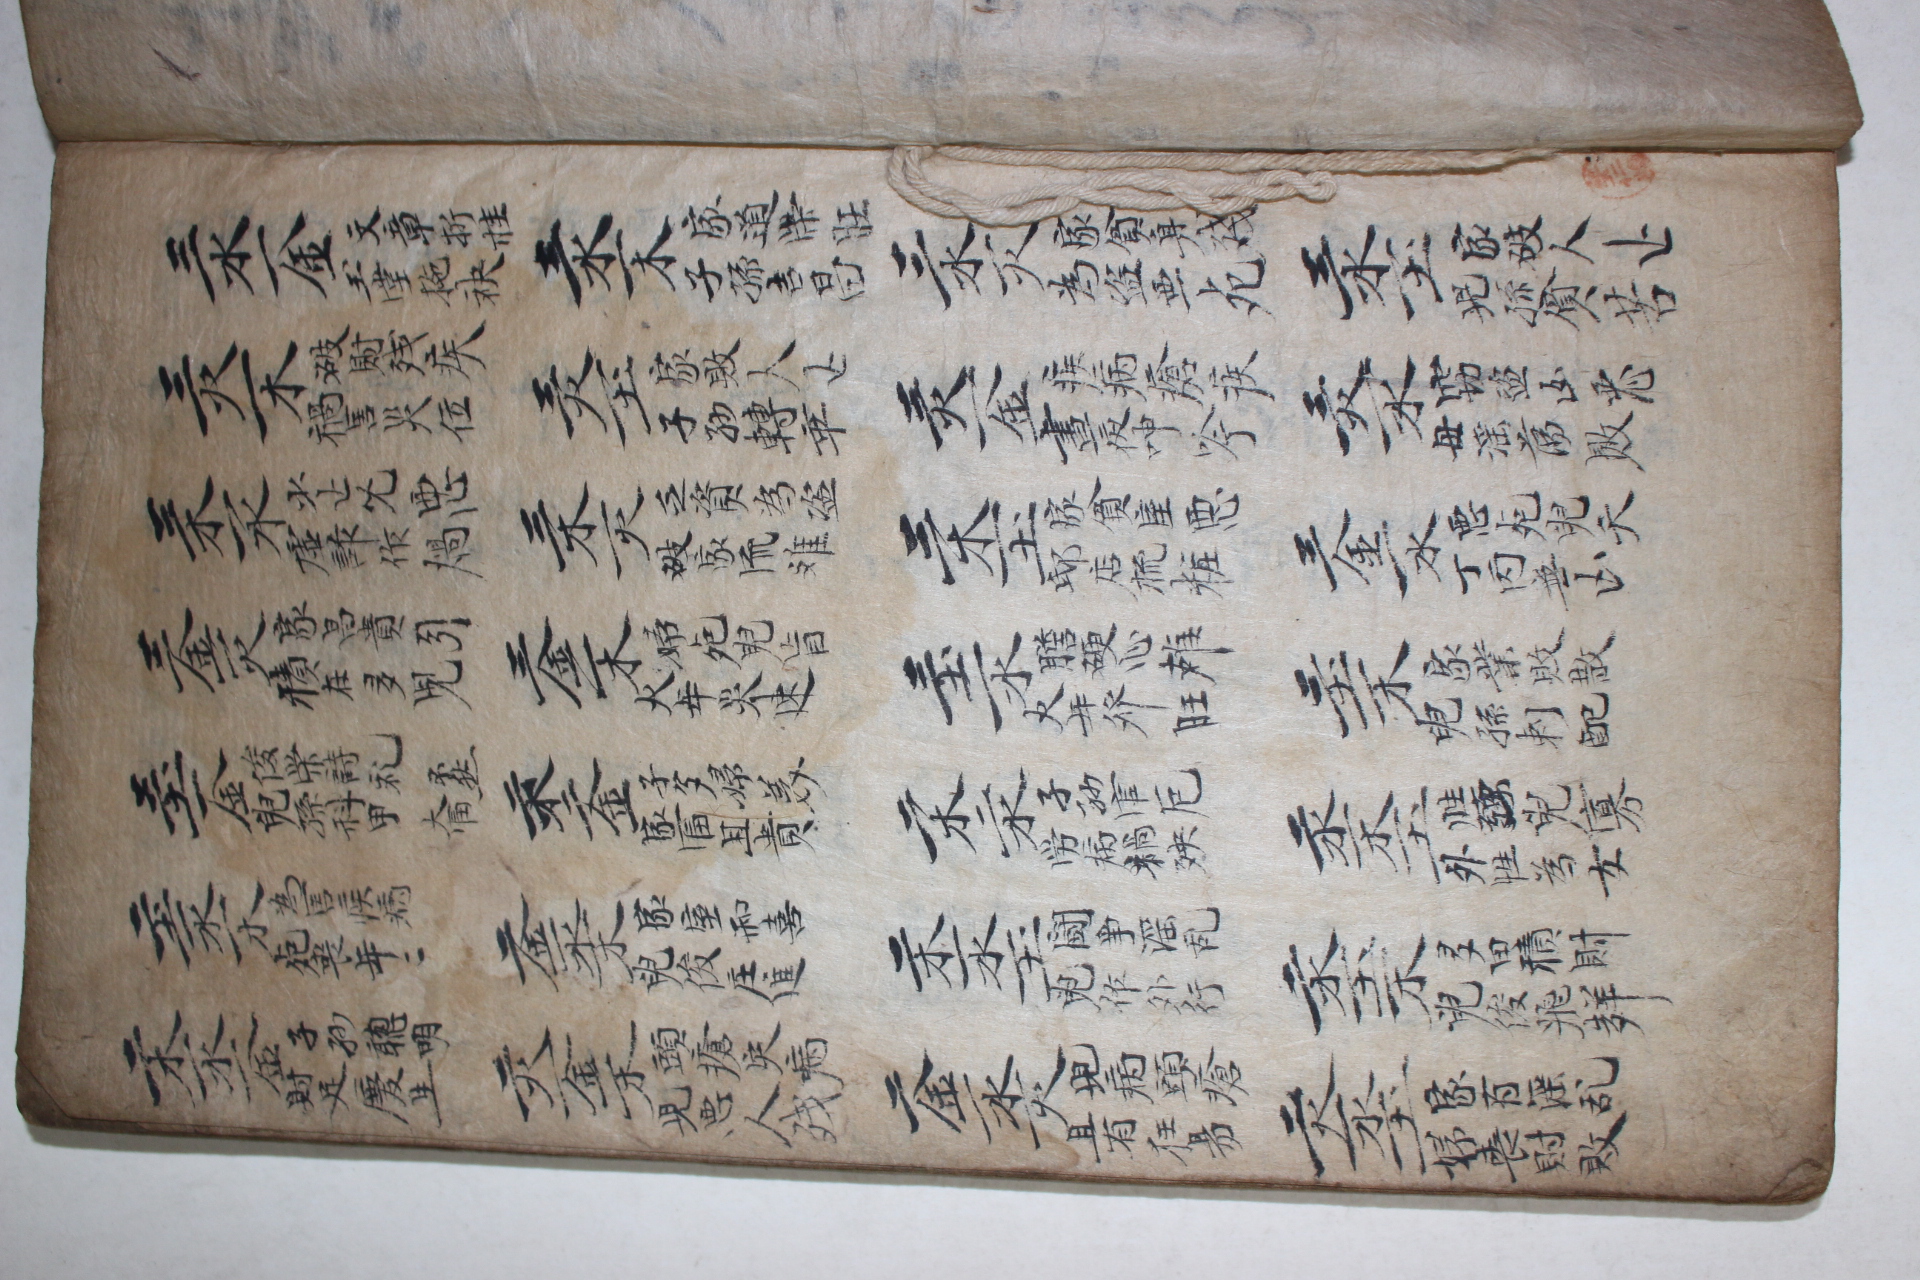 三水一金
文章折桂
玉堂拖袂
三水一木
家道榮旺
子孫吉昌
三水一火
家貧身残
為盗亜死
三水一土
家破人亡
児孫償苦
三火一木
破財残疾
禍害災位
三火一土
家敗人亡
子孙轉
三火一金
疾病瘡疾
晝夜呻吟
三火一水
窃盗凶惡
毋滛蕩敗
三木一水
少亡
虚詐作禍
三木一火
乏資為盗
破家流
三木一土
家貧
邸店梳粧
三金一水
悪死兒夭
丁丙
三金一火
家昌貴引
積在多児
三金一木
婦死兒盲
火年
三土一水
膽硬心雄
火年
旺
三土一木
家業敗散
兒孫刺配
三土一金
俊榮詩礼
兒孫科甲
大富
二水二金
子多婦美
家富且貴
二木二水
子孙官厄
労病禍殃
二水一木一土
兒寡
外性為女
二土一水一木
為害疾病
死喪年二
二金一水一木
家室和喜
兒俊庄進
二木一水一土
闘爭滛乱
兒作外行
二水一土一木
多田積財
兒俊
二木一水一金
子孙聰明
財足慶生
二火一金一木
頭瘡病
児悪人残
二金一水一火
児病頭瘡
且有狂易
二火一水一土
家有滛乱
婦喪財敗